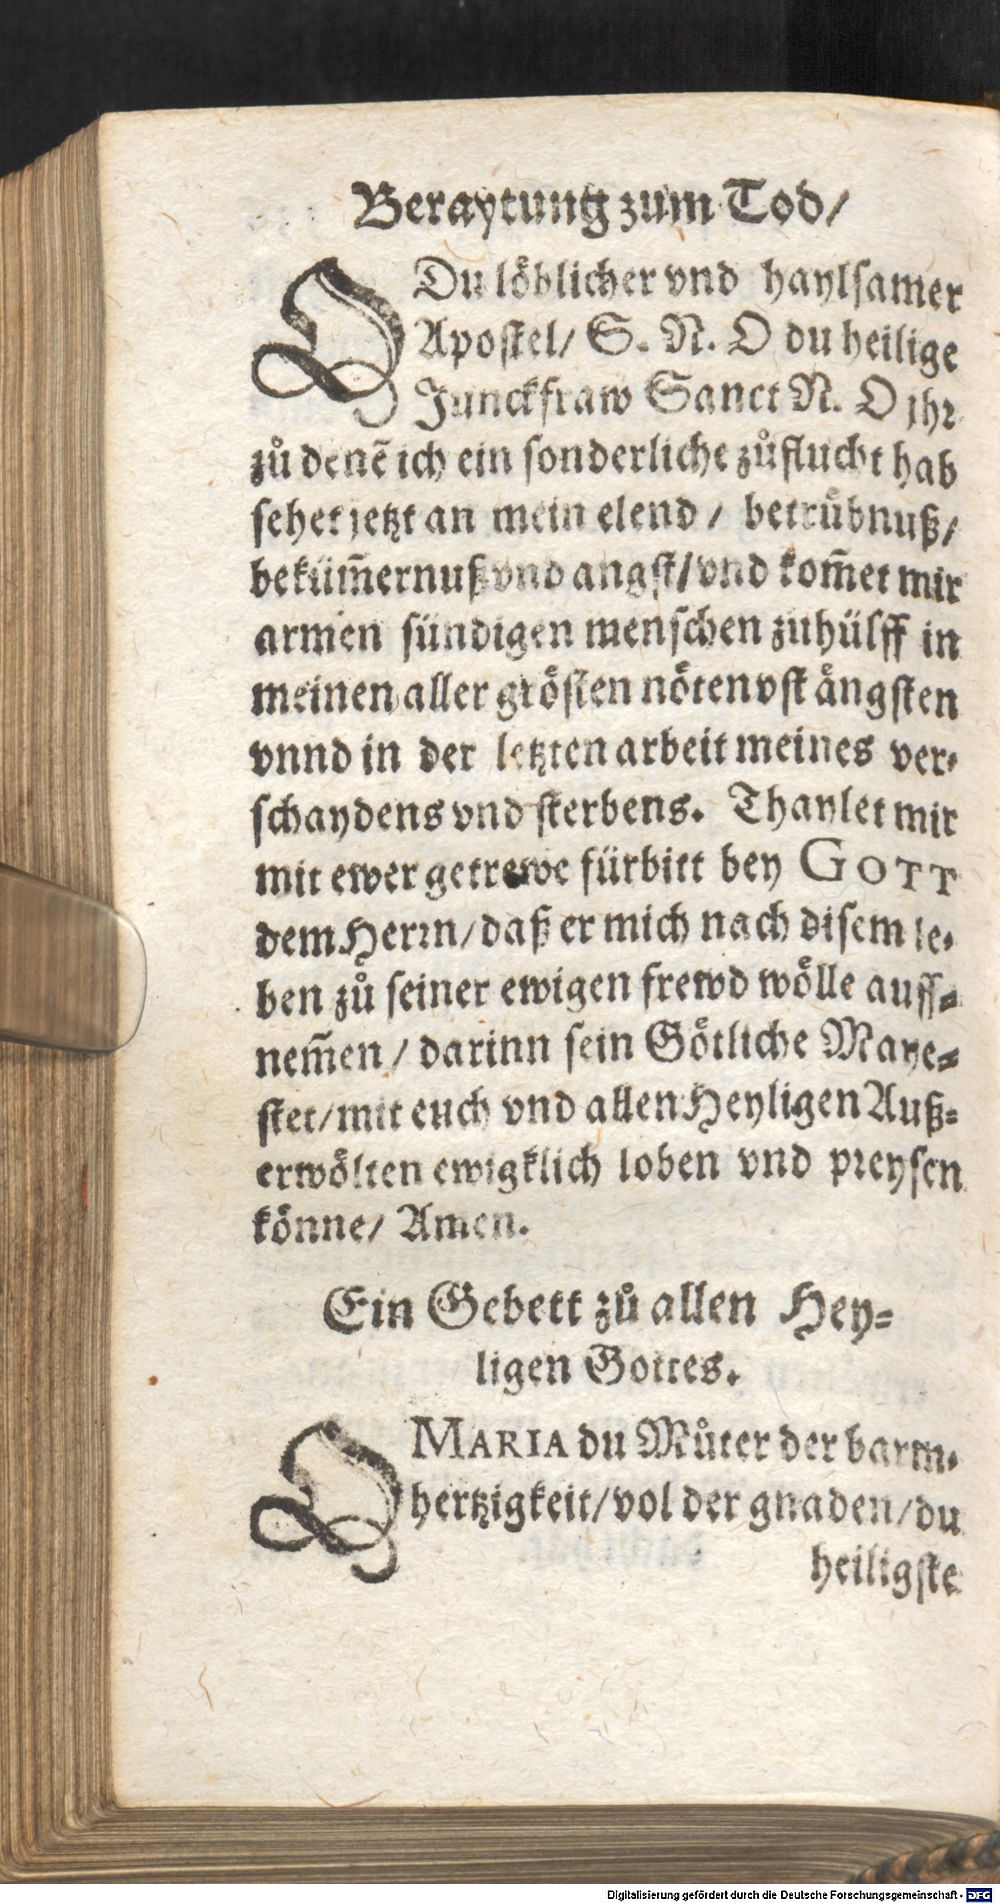 Beraytung zum Tod/
O Du löblicher vnd haylsamer
Apostel/ S. N. O du heilige
Junckfraw Sanct N. O jhr
zů denē ich ein sonderliche zůflucht hab
sehet jetzt an mein elend / betrůbnuß/
beküm̄ernuß vnd angst/ vnd kom̄et mir
armen sündigen menschen zuhülff in
meinen aller grösten nöten vn̄ ängsten
vnnd in der letzten arbeit meines ver-
schaydens vnd sterbens. Thaylet mir
mit ewer getrewe fürbitt bey GOTT
dem Herrn/ daß er mich nach disem le-
ben zů seiner ewigen frewd wölle auff-
nem̄en / darinn sein Götliche Maye-
stet/ mit euch vnd allen Heyligen Auß-
erwölten ewigklich loben vnd preysen
könne/ Amen.
Ein Gebett zů allen Hey-
ligen Gottes.
O MARIA du Můter der barm-
hertzigkeit/ vol der gnaden/ du
heiligste
Digitalisierung gefördert durch die Deutsche Forschungsgemeinschaft - DFG